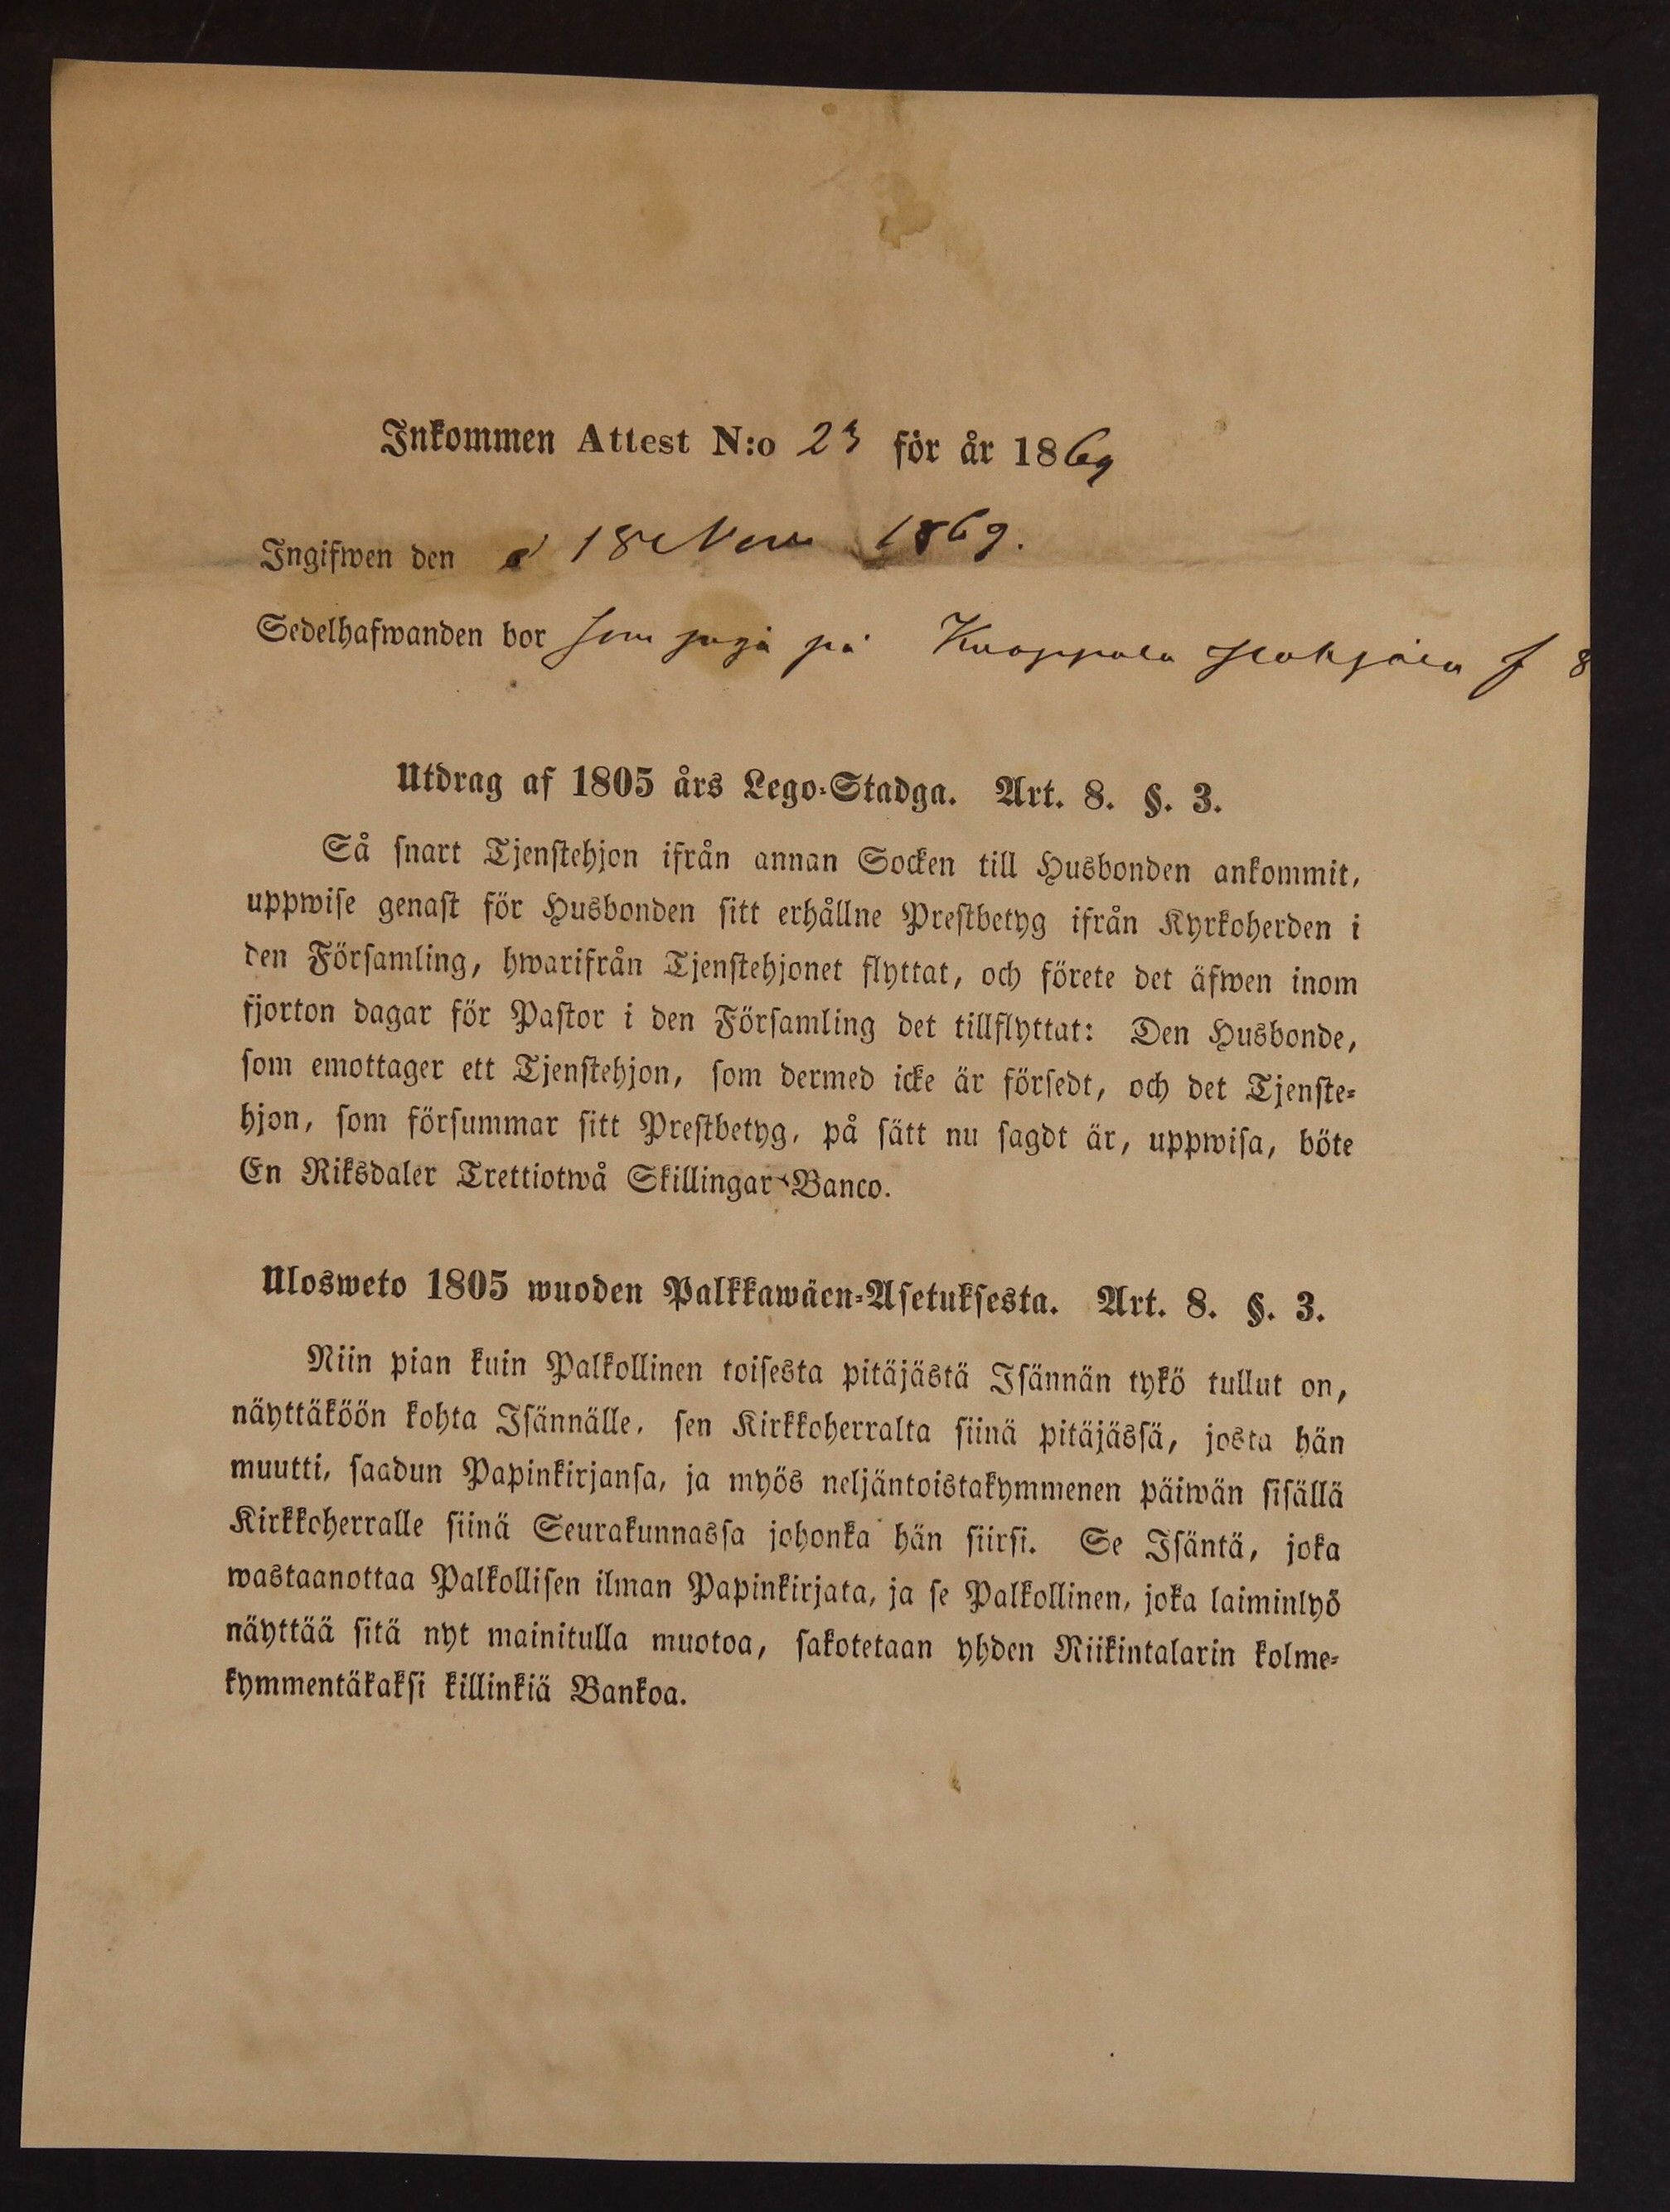 Inkommen Attest N:o 23 för år 1869
Ingifwen den 18 Nov 1869.
Sedelhafwanden bor som piga på Knappala
Utdrag af 1805 års Lego-Stadga. Art. 8. §. 3.
Så snart Tjenstehjon ifrån annan Socken till Husbonden ankommit,
uppwise genast för Husbonden sitt erhållne Prestbetyg ifrån Kyrkoherden i
den Församling, hwarifrån Tjenstehjonet flyttat, och förete det äfwen inom
fjorton dagar för Pastor i den Församling det tillflyttat: Den Husbonde,
som emottager ett Tjenstehjon, som dermed icke är försedt, och det Tjenste-
hjon, som försummar sitt Prestbetyg, på sätt nu sagdt är, uppwisa, böte
En Riksdaler Trettiotwå Skillingar Banco.
Ulosweto 1805 wuoden Palkkawäen-Asetuksesta. Art. 8. §. 3.
Niin pian kuin Palkollinen toisesta pitäjästä Isännän tykö tullut on,
näyttäköön kohta Isännälle, sen Kirkkoherralta siinä pitäjässä, josta hän
muutti, saadun Papinkirjansa, ja myös neljäntoistakymmenen päiwän sisällä
Kirkkoherralle siinä Seurakunnassa johonka hän siirsi. Se Isäntä, joka
wastaanottaa Palkollisen ilman Papinkirjata, ja se Palkollinen, joka laiminlyö
näyttää sitä nyt mainitulla muotoa, sakotetaan yhden Riikintalarin kolme-
kymmentäkaksi killinkiä Bankoa.